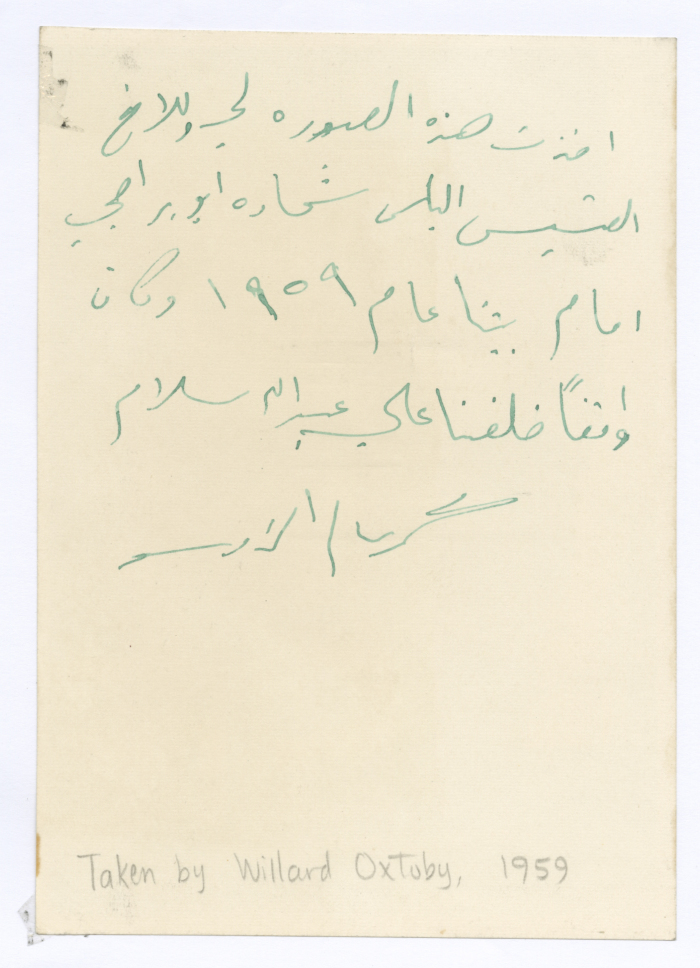 اخذت هذه الصوره لي وللاخ
القسيس الياس شحاده ابو
امام بيتنا عام ١٩٥٩ وكان
واقفاً خلفنا علي عبدالسلام
كريام
Taken by Willard Oxtoby, 1959